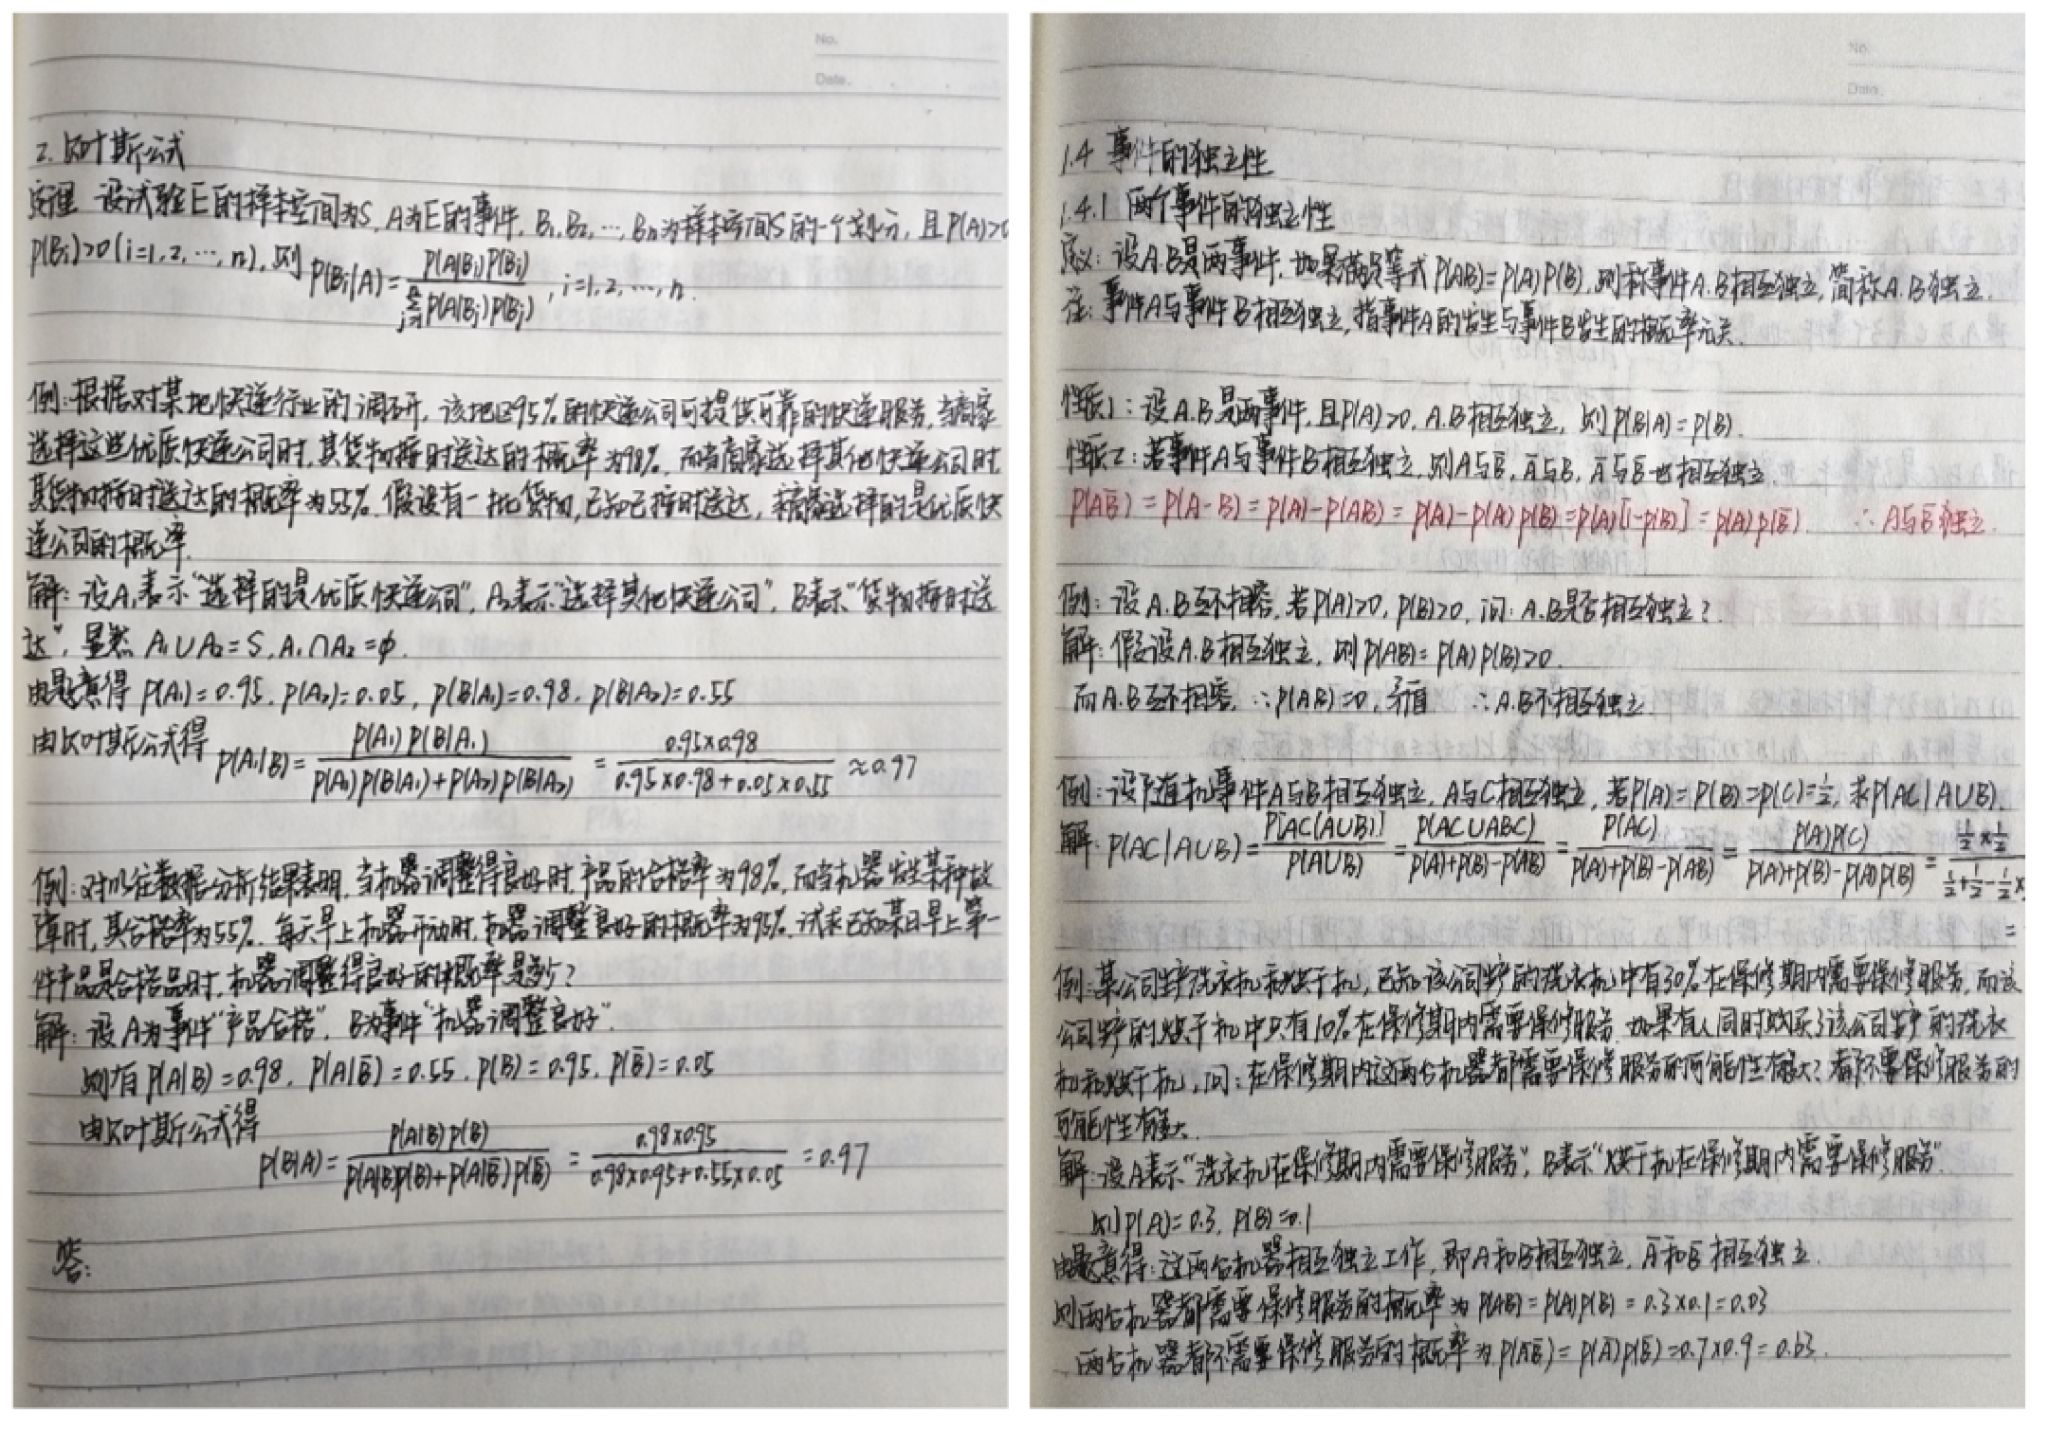 No.
Date.
2. 贝叶斯公式
定理 设试验E的样本空间为S, A为E的事件, B₁, B₂, …, Bn为样本空间S的一个划分, 且P(A)>0
P(Bi)>0 (i=1, 2, …, n), 则 P(Bi|A) = P(A|Bi)P(Bi) / ∑(j=1→n) P(A|Bj)P(Bj), i=1, 2, …, n.
例: 根据对某地快递行业的调研, 该地区95%的快递公司可提供可靠的快递服务, 当商家
选择这些优质快递公司时, 其货物按时送达的概率为98%, 而当商家选择其他快递公司时
其货物按时送达的概率为55%. 假设有一批货物, 已知已按时送达, 求商家选择的是优质快
递公司的概率.
解: 设A₁表示"选择的是优质快递公司", A₂表示"选择其他快递公司", B表示"货物按时送
达", 显然 A₁∪A₂=S, A₁∩A₂=φ.
由题意得 P(A₁)=0.95, P(A₂)=0.05, P(B|A₁)=0.98, P(B|A₂)=0.55
由贝叶斯公式得 P(A₁|B) = P(A₁)P(B|A₁) / P(A₁)P(B|A₁)+P(A₂)P(B|A₂) = 0.95×0.98 / 0.95×0.98+0.05×0.55 ≈0.97
例: 对以往数据分析结果表明, 当机器调整得良好时, 产品的合格率为98%, 而当机器发生某种故
障时, 其合格率为55%. 每天早上机器开动时, 机器调整良好的概率为95%. 试求已知某日早上第一
件产品是合格品时, 机器调整得良好的概率是多少?
解: 设A为事件"产品合格", B为事件"机器调整良好".
则有 P(A|B)=0.98, P(A|B̄)=0.55, P(B)=0.95, P(B̄)=0.05
由贝叶斯公式得
P(B|A) = P(A|B)P(B) / P(A|B)P(B)+P(A|B̄)P(B̄) = 0.98×0.95 / 0.98×0.95+0.55×0.05 = 0.97
答:
No.
Date.
1.4 事件的独立性
1.4.1 两个事件的独立性
定义: 设A.B是两事件, 如果满足等式 P(AB)=P(A)P(B), 则称事件A.B相互独立, 简称A.B独立.
注: 事件A与事件B相互独立, 指事件A的发生与事件B发生的概率无关.
性质1: 设A.B是两事件, 且P(A)>0, A.B相互独立, 则P(B|A)=P(B).
性质2: 若事件A与事件B相互独立, 则A与B̄, Ā与B, Ā与B̄也相互独立.
P(AB̄)=P(A-B)=P(A)-P(AB)=P(A)-P(A)P(B)=P(A)[1-P(B)]=P(A)P(B̄). ∴A与B̄独立.
例: 设A.B互不相容, 若P(A)>0, P(B)>0, 问: A.B是否相互独立?
解: 假设A.B相互独立, 则P(AB)=P(A)P(B)>0.
而A.B互不相容, ∴P(AB)=0, 矛盾 ∴A.B不相互独立.
例: 设随机事件A与B相互独立, A与C相互独立, 若P(A)=P(B)=P(C)=½, 求P(AC|A∪B).
解: P(AC|A∪B) = P[AC(A∪B)] / P(A∪B) = P(AC∪ABC) / P(A)+P(B)-P(AB) = P(AC) / P(A)+P(B)-P(AB) = P(A)P(C) / P(A)+P(B)-P(A)P(B) = ½×½ / ½+½-½×
=
例: 某公司生产洗衣机和烘干机, 已知该公司生产的洗衣机中有30%在保修期内需要保修服务, 而该
公司生产的烘干机中只有10%在保修期内需要保修服务. 如果有人同时购买了该公司生产的洗衣
机和烘干机, 问: 在保修期内这两台机器都需要保修服务的可能性有多大? 都不需要保修服务的
可能性有多大.
解: 设A表示"洗衣机在保修期内需要保修服务", B表示"烘干机在保修期内需要保修服务".
则P(A)=0.3, P(B)=0.1
由题意得: 这两台机器相互独立工作, 即A和B相互独立, Ā和B̄相互独立.
则两台机器都需要保修服务的概率为 P(AB)=P(A)P(B)=0.3×0.1=0.03
两台机器都不需要保修服务的概率为 P(ĀB̄)=P(Ā)P(B̄)=0.7×0.9=0.63.